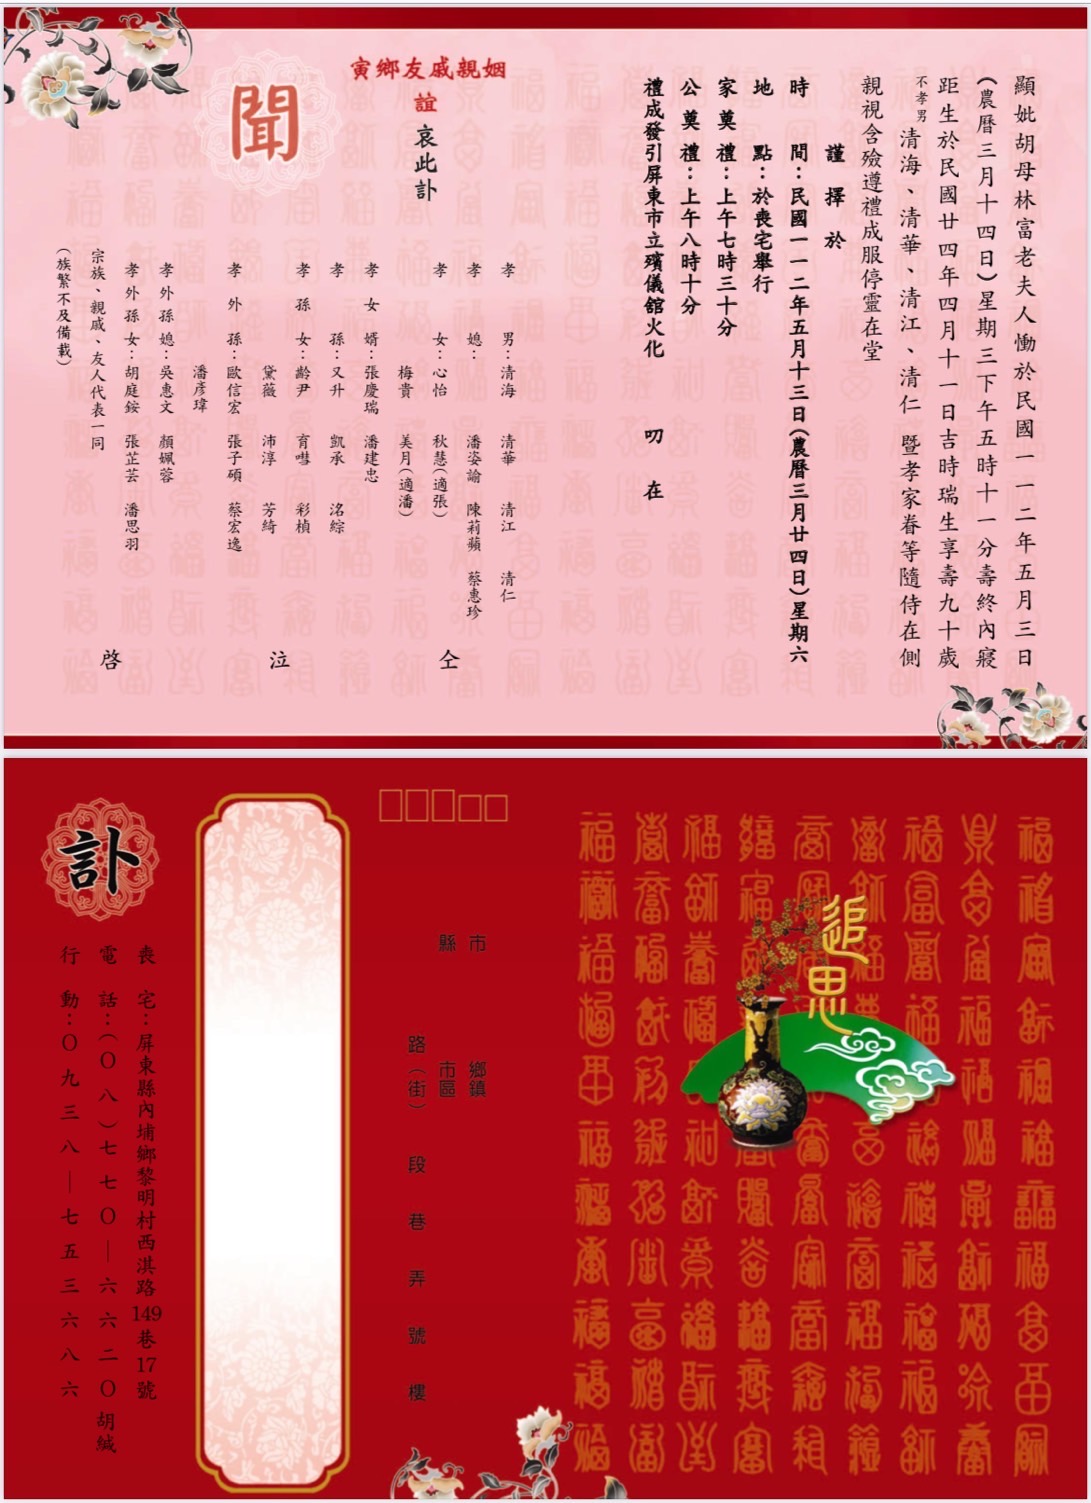 顯妣胡母林富老夫人慟於民國一一二年五月三日
(農曆三月十四日)星期三下午五時十一分壽終內寢
距生於民國廿四年四月十一日吉時瑞生享壽九十歲
不孝男清海、清華、清江、清仁 暨孝家眷等隨侍在側
親視含殮遵禮成服停靈在堂
謹擇於
時 間：民國一一二年五月十三日(農曆三月廿四日)星期六
地 點：於喪宅舉行
家奠禮：上午七時三十分
公奠禮：上午八時十分
禮成發引屏東市立殯儀館火化 叨 在
寅鄉友戚親姻
誼 哀此訃
聞
孝 男：清海 清華 清江 清仁
孝 媳： 潘姿諭 陳莉蘋 蔡惠珍
孝 女：心怡 秋慧(適張)
梅貴 美月(適潘)
孝女婿：張慶瑞 潘建忠
孝 孫：又升 凱承 洺綜
孝孫女：齡尹 育嘒 彩楨
黛薇 沛淳 芳綺
孝外孫：歐信宏 張子碩 蔡宏逸
潘彥瑋
孝外孫媳：吳惠文 顏姵蓉
孝外孫女：胡庭銨 張芷芸 潘思羽
宗族、親戚、友人代表一同
(族繁不及備載)
仝 泣 啓
追思
市
縣
鄉鎮
市區
路(街) 段 巷 弄 號 樓
訃
喪 宅：屏東縣內埔鄉黎明村西淇路149巷17號
電 話：(〇八)七七〇—六六二〇 胡緘
行 動：〇九三八—七五三六八六